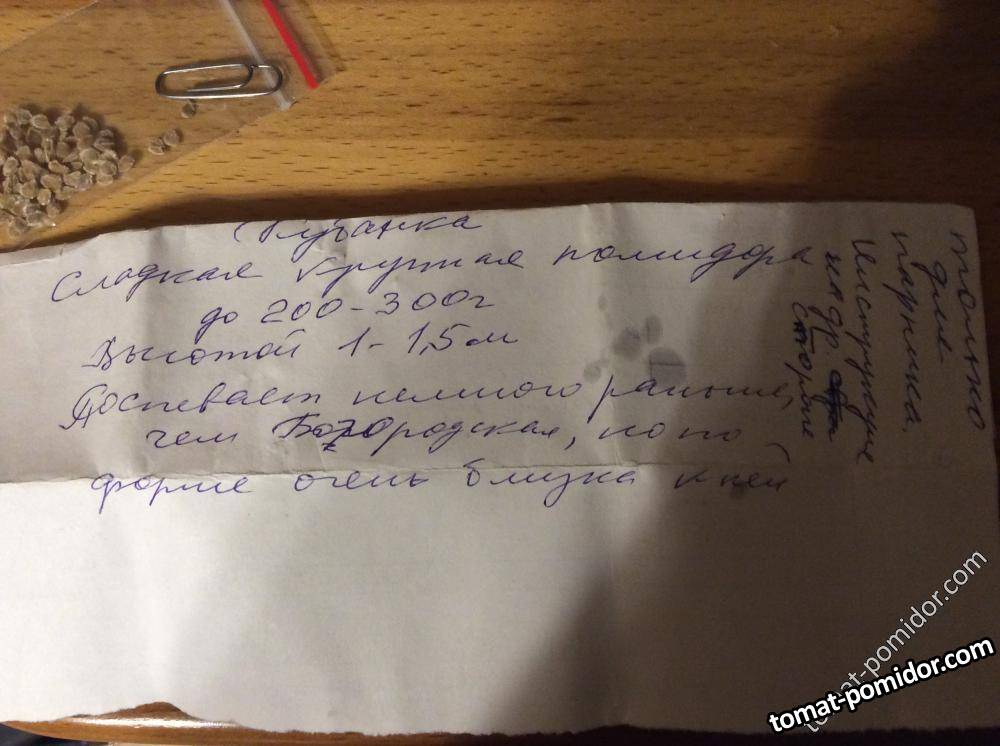 Сладкая крупная помидора
до 200-300г
Высотой 1-1,5м
Поспевает немного раньше,
чем Богородская, но по
форме очень близка к ней
только
для
парника.
Инструкция
на др.
стороне
tomat-pomidor.com
tomat-pomidor.com